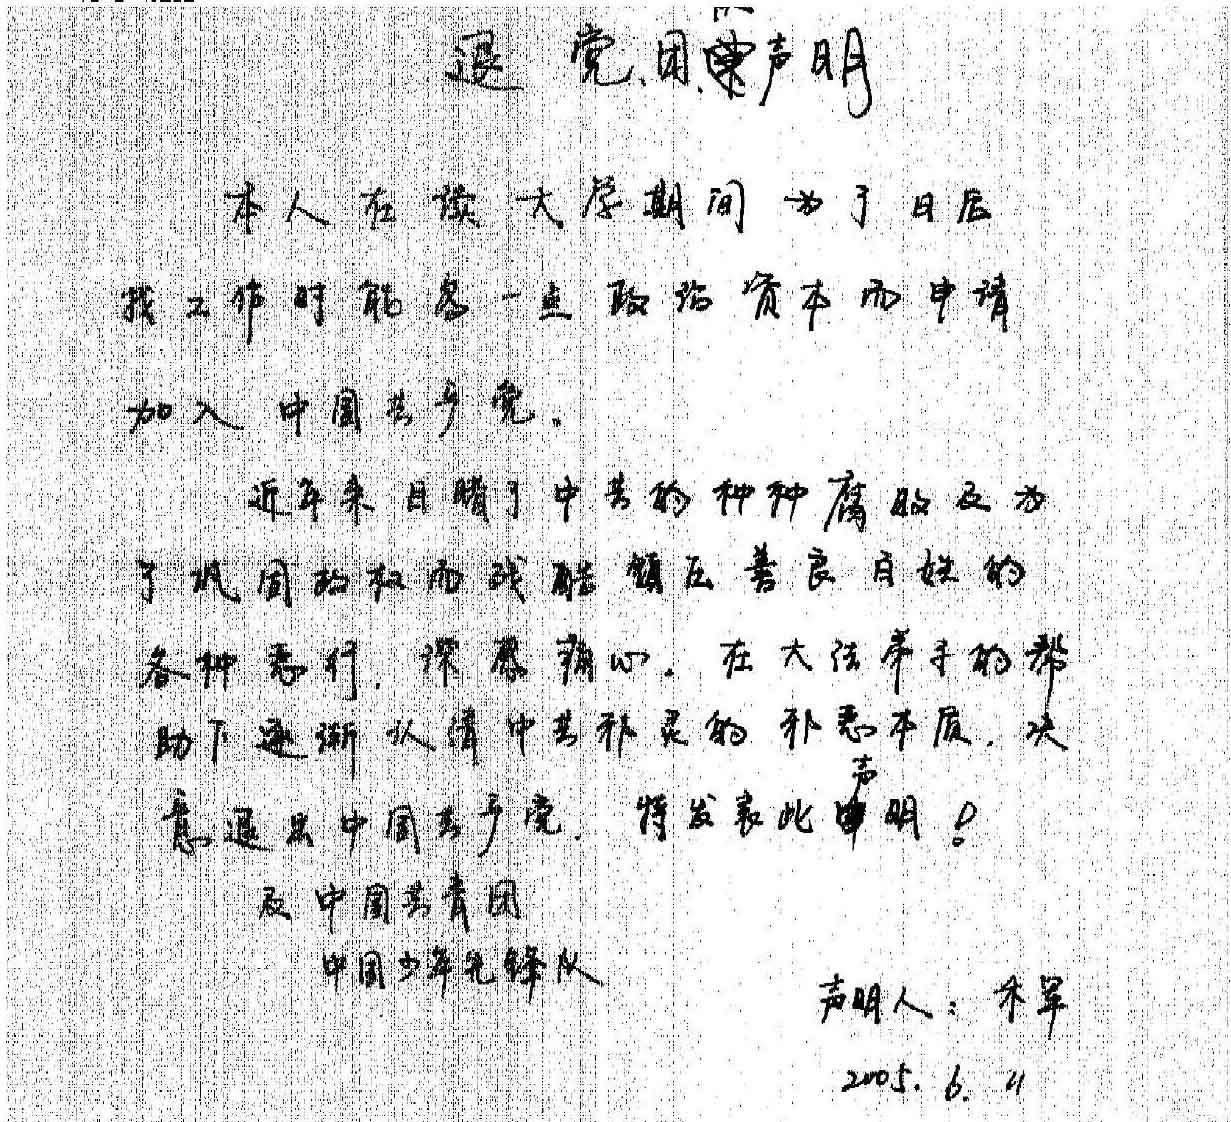 退党、团、队声明
本人在读大学期间为了日后
找工作时能多一点政治资本而申请
加入中国共产党。
近年来目睹了中共的种种腐败及为
了巩固政权而残酷镇压善良百姓的
各种恶行，深感痛心。在大法弟子的帮
助下逐渐认清中共邪灵的邪恶本质，决
意退出中国共产党，特发表此声明！
及中国共青团
中国少年先锋队
声明人：禾军
2005.6.11